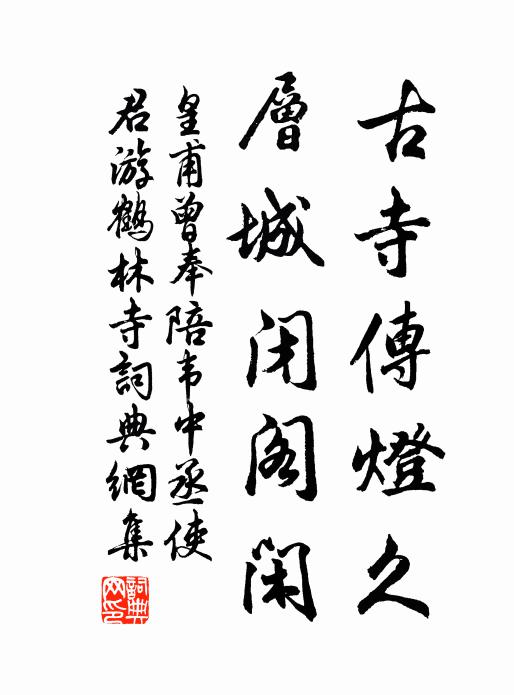 古寺傳燈久
層城閉閣閑
皇甫曾奉陪韦中丞使
君游鶴林寺詞典網集
詞典網印